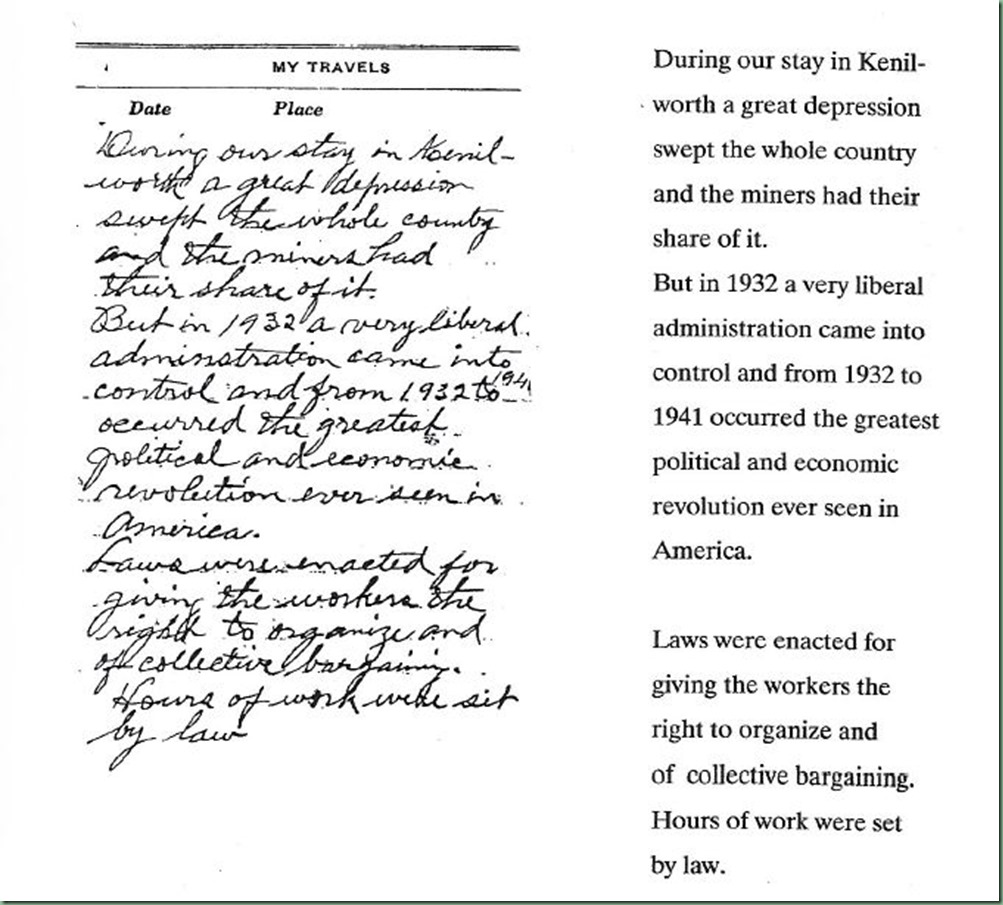 MY TRAVELS
Date Place
During our stay in Kenil-
worth a great depression
swept the whole country
and the miners had
their share of it.
But in 1932 a very liberal
administration came into
control and from 1932 to 1941
occurred the greatest
political and economic
revolution ever seen in
America.
Laws were enacted for
giving the workers the
right to organize and
of collective bargaining.
Hours of work were set
by law
During our stay in Kenil-
worth a great depression
swept the whole country
and the miners had their
share of it.
But in 1932 a very liberal
administration came into
control and from 1932 to
1941 occurred the greatest
political and economic
revolution ever seen in
America.
Laws were enacted for
giving the workers the
right to organize and
of collective bargaining.
Hours of work were set
by law.